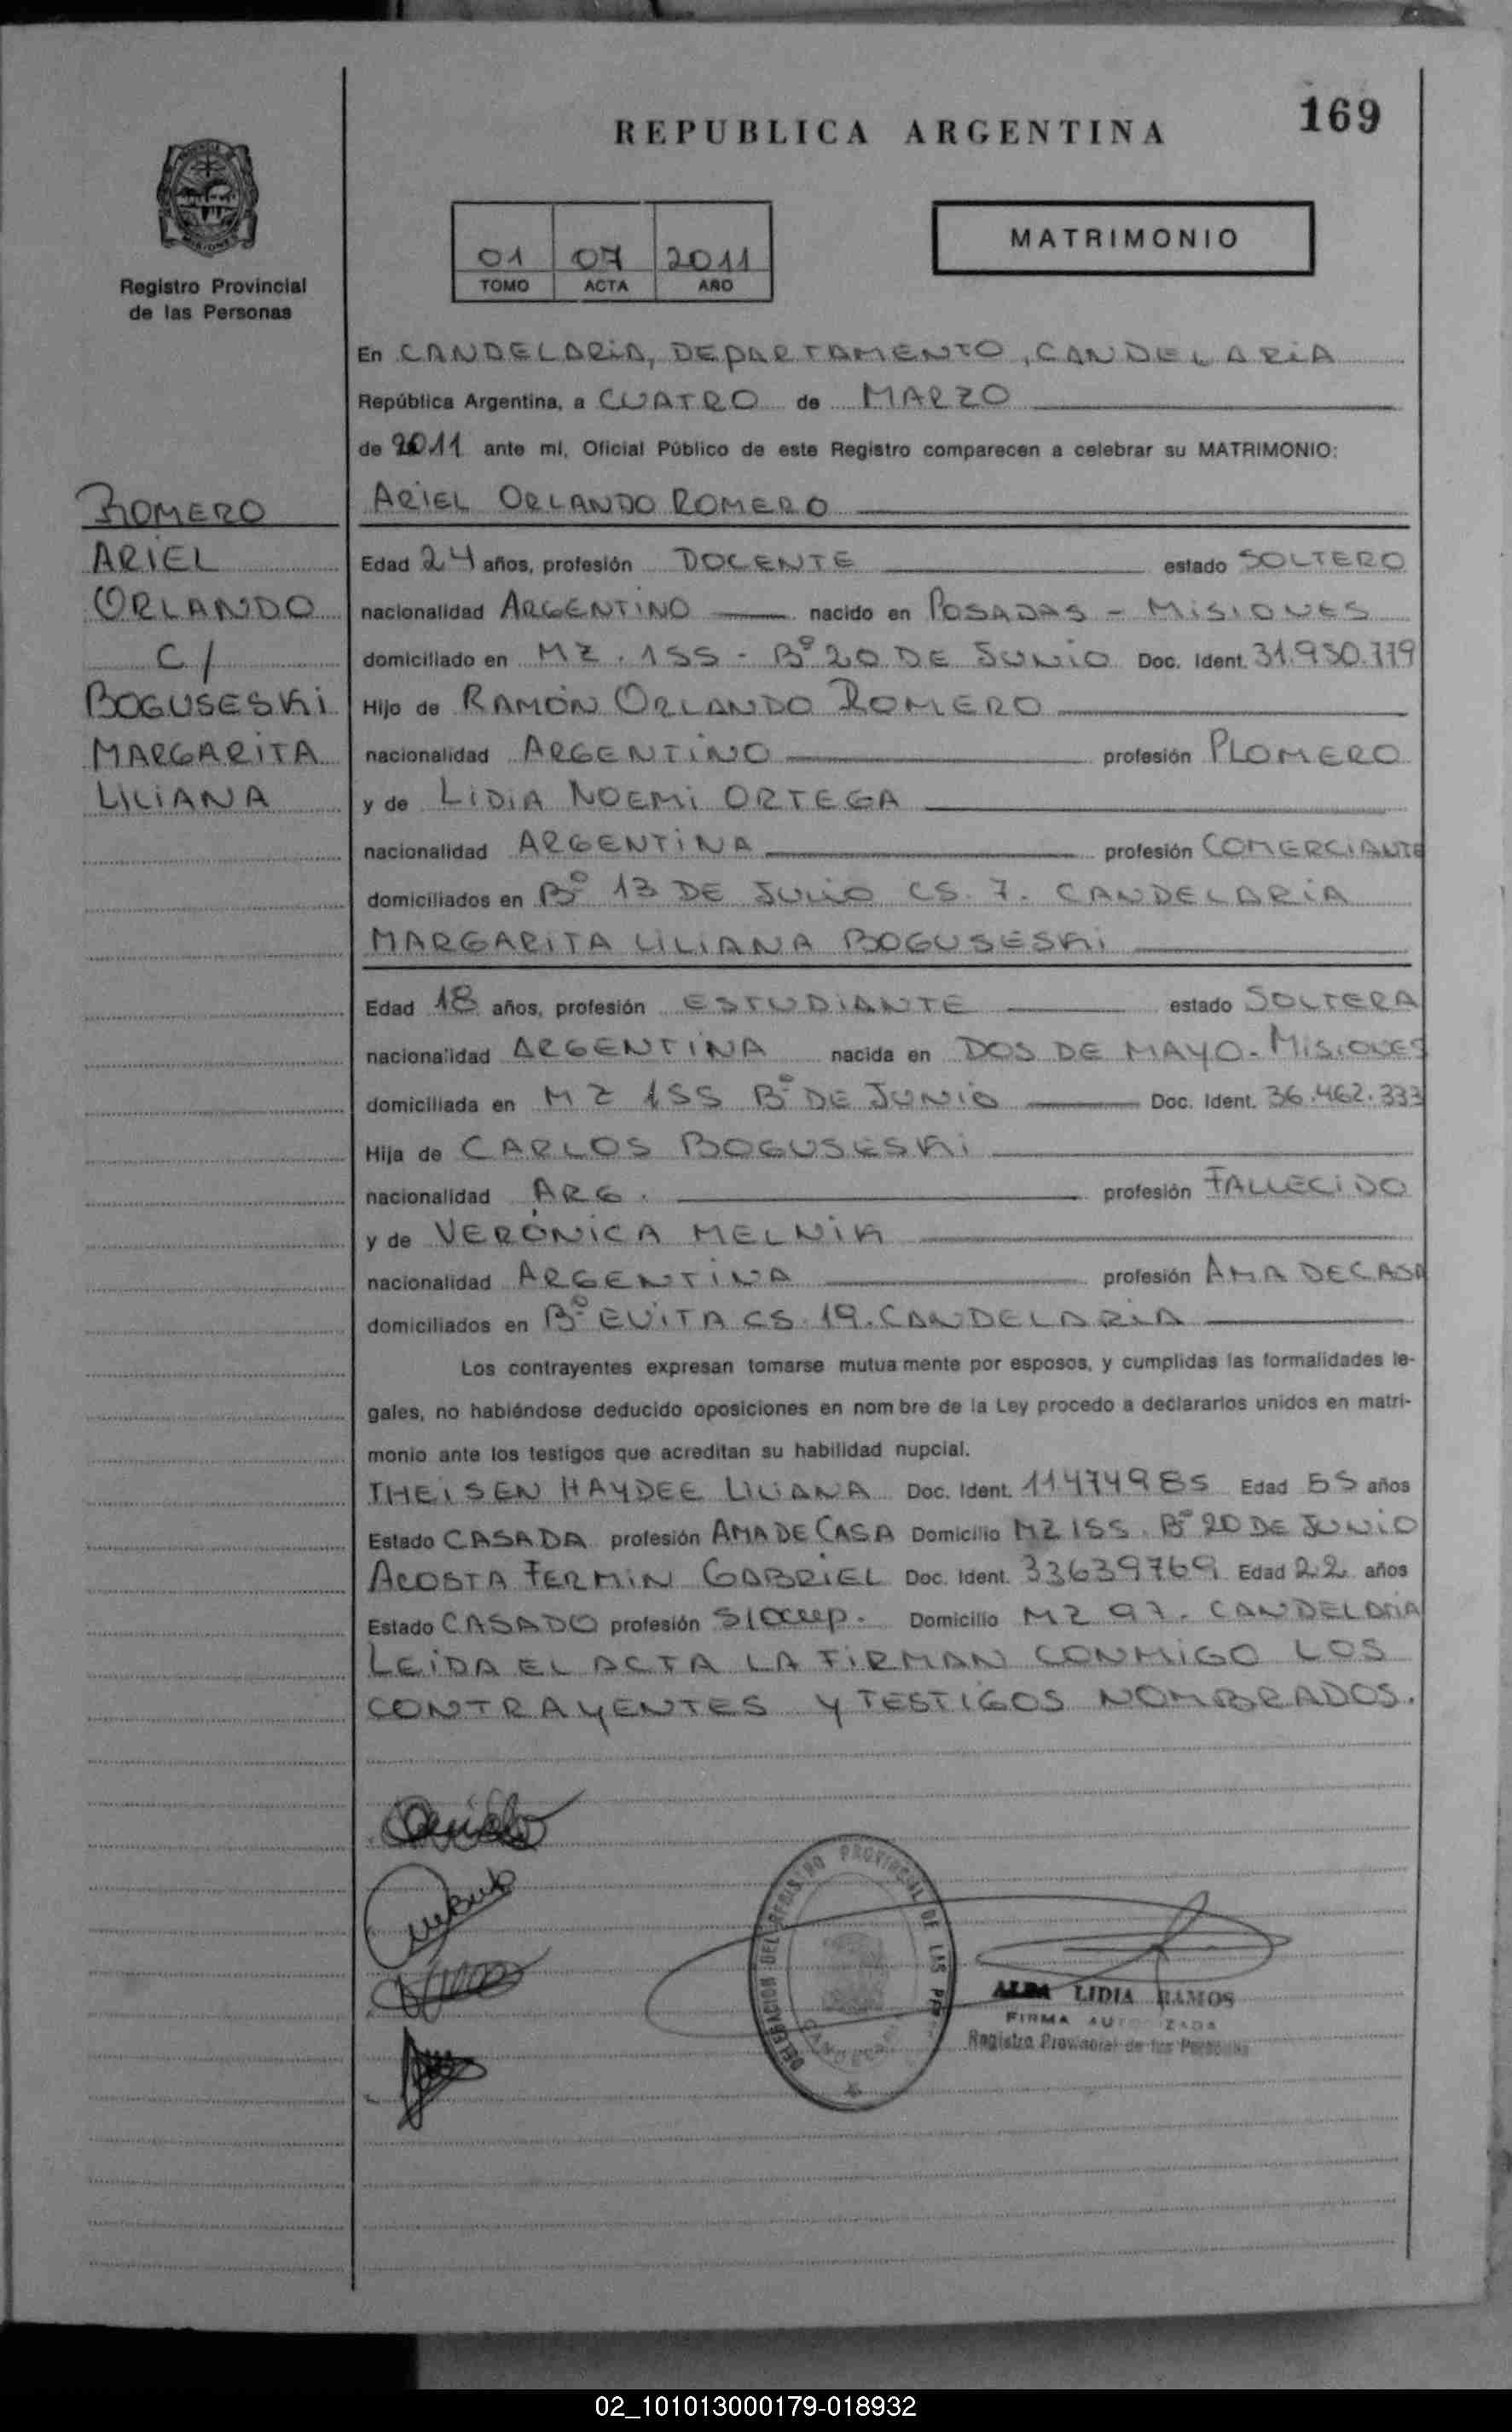 169
REPUBLICA ARGENTINA
MATRIMONIO
01 07 2011
TOMO ACTA AÑO
Registro Provincial
de las Personas
En CANDELARIA, DEPARTAMENTO, CANDELARIA
República Argentina, a CUATRO de MARZO
de 2011 ante mí, Oficial Público de este Registro comparecen a celebrar su MATRIMONIO:
ARIEL ORLANDO ROMERO
ROMERO
ARIEL
ORLANDO
C/
BOGUSESKI
MARGARITA
LILIANA
Edad 24 años, profesión DOCENTE estado SOLTERO
nacionalidad ARGENTINO nacido en POSADAS - MISIONES
domiciliado en MZ. 155 - Bº 20 DE JUNIO Doc. Ident. 31.930.779
Hijo de RAMÓN ORLANDO ROMERO
nacionalidad ARGENTINO profesión PLOMERO
y de LIDIA NOEMI ORTEGA
nacionalidad ARGENTINA profesión COMERCIANTE
domiciliados en Bº 13 DE JULIO CS. 7. CANDELARIA
MARGARITA LILIANA BOGUSESKI
Edad 18 años, profesión ESTUDIANTE estado SOLTERA
nacionalidad ARGENTINA nacida en DOS DE MAYO - MISIONES
domiciliada en MZ 155 Bº DE JUNIO Doc. Ident. 36.462.333
Hija de CARLOS BOGUSESKI
nacionalidad ARG. profesión FALLECIDO
y de VERÓNICA MELNIK
nacionalidad ARGENTINA profesión AMA DE CASA
domiciliados en Bº EVITA CS. 19. CANDELARIA
Los contrayentes expresan tomarse mutua mente por esposos, y cumplidas las formalidades le-
gales, no habiéndose deducido oposiciones en nom bre de la Ley procedo a declararlos unidos en matri-
monio ante los testigos que acreditan su habilidad nupcial.
THEISEN HAYDEE LILIANA Doc. Ident. 11474985 Edad 55 años
Estado CASADA profesión AMA DE CASA Domicilio MZ 155. Bº 20 DE JUNIO
ACOSTA FERMIN GABRIEL Doc. Ident. 33639769 Edad 22 años
Estado CASADO profesión S/OCUP. Domicilio MZ 97. CANDELARIA
LEIDA EL ACTA LA FIRMAN CONMIGO LOS
CONTRAYENTES Y TESTIGOS NOMBRADOS.
DELEGACION DEL REGISTRO PROVINCIAL DE LAS
ALBA LIDIA RAMOS
FIRMA AUTORIZADA
Registro Provincial de las Personas
02_101013000179-018932